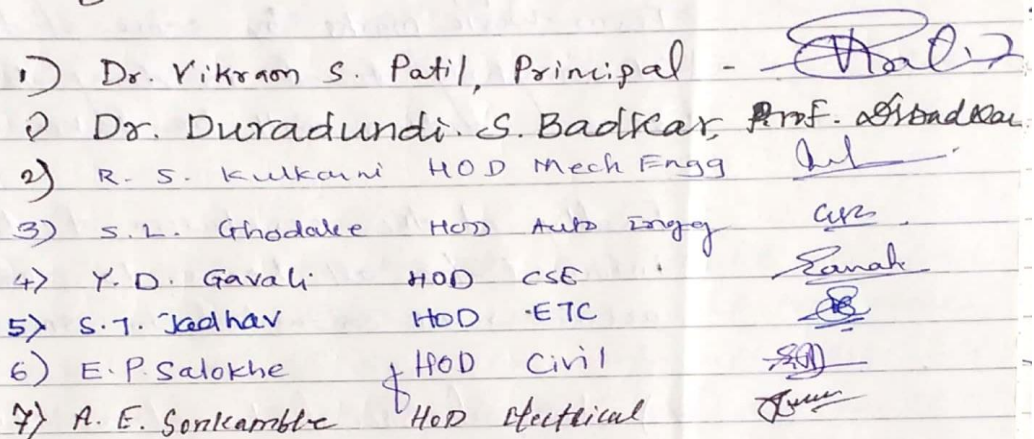 1) Dr. Vikram S. Patil, Principal -
Dr. Duradundi. S. Badkar, Prof. DSBadkar
2) R. S. Kulkarni HOD Mech Engg
3) S. L. Ghodake HOD Auto Engg
4) Y. D. Gavali HOD CSE
5) S. J. Jadhav HOD ETC
6) E. P. Salokhe HOD Civil
7) A. E. Sonkamble HOD Electrical